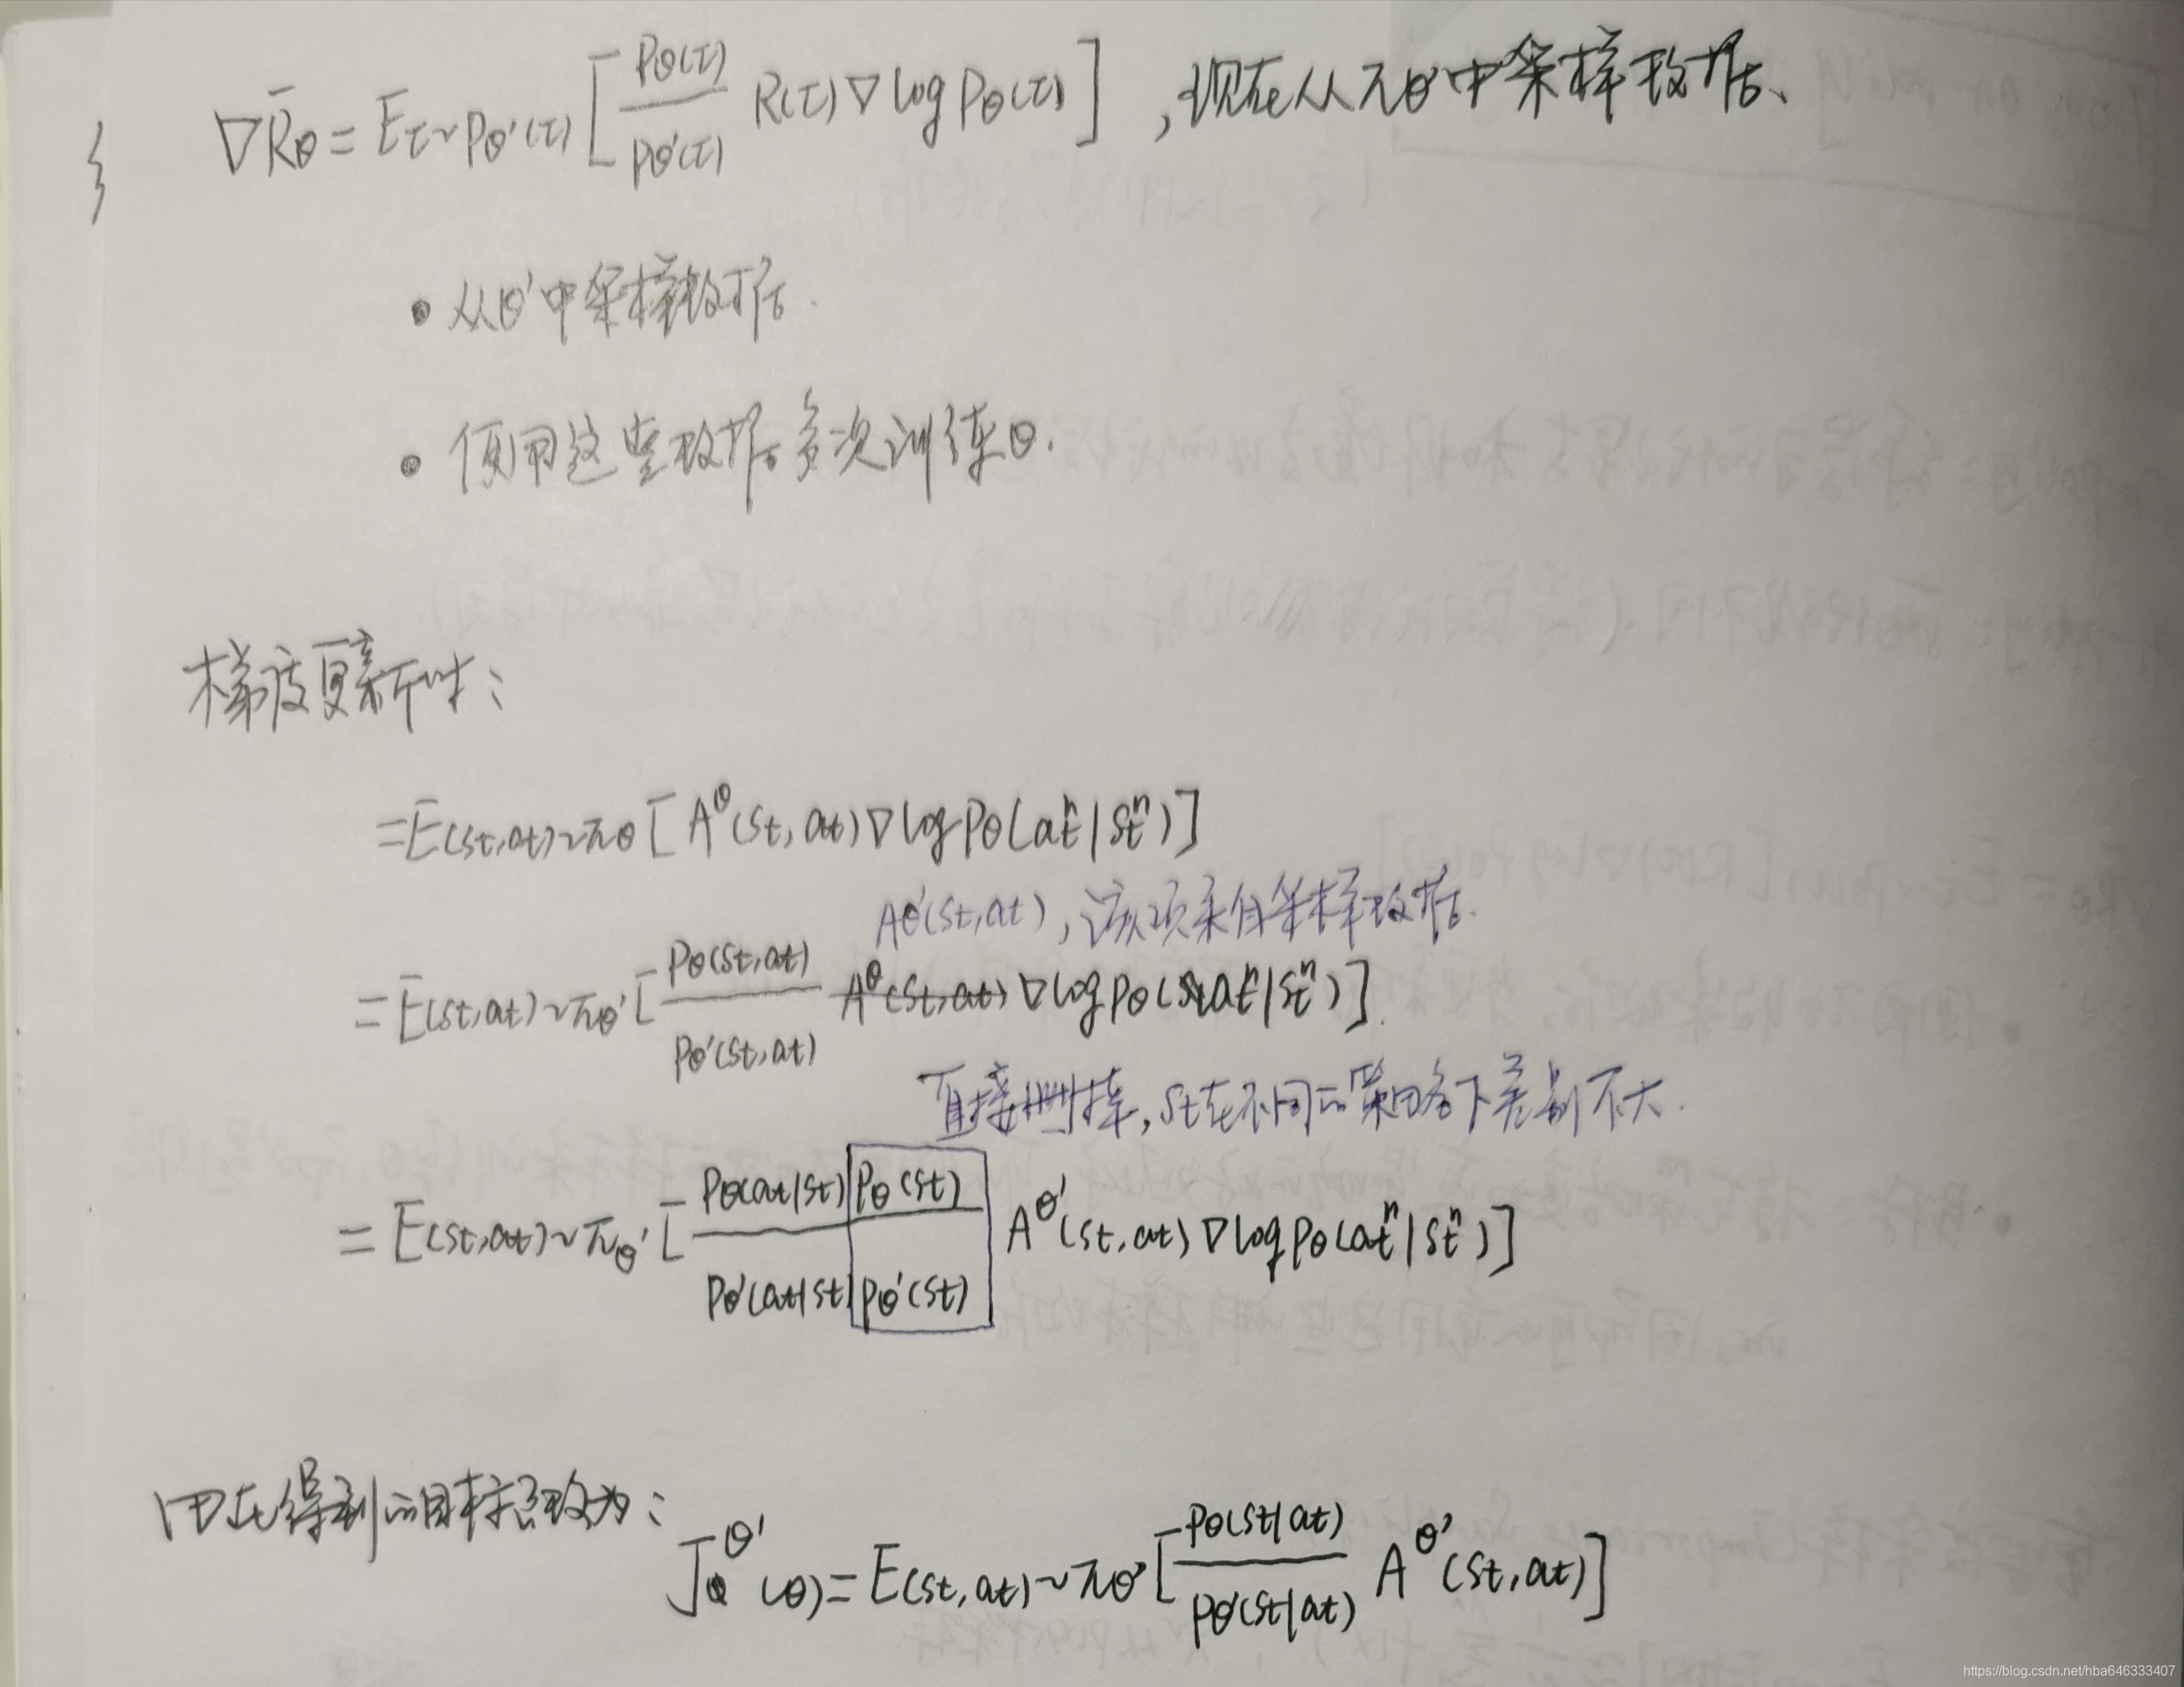 ∇R̄θ = Eτ~Pθ'(τ) [ Pθ(τ) / Pθ'(τ) R(τ) ∇ log Pθ(τ) ] , 现在从πθ'中采样数据、
• 从θ'中采样数据.
• 使用这些数据多次训练θ.
梯度更新时:
= E(st,at)~πθ [ A^θ(st, at) ∇ log Pθ(at^n | st^n) ]
Aθ'(st,at), 该项来自采样数据.
= E(st,at)~πθ' [ Pθ(st,at) / Pθ'(st,at) A^θ(st,at) ∇ log Pθ(at^n | st^n) ].
直接删掉, st在不同的策略下差别不大.
= E(st,at)~πθ' [ Pθ(at|st) Pθ(st) / Pθ'(at|st) Pθ'(st) A^θ'(st, at) ∇ log Pθ(at^n | st^n) ]
现在得到的目标函数为:
J^θ'(θ) = E(st, at)~πθ' [ Pθ(st|at) / Pθ'(st|at) A^θ'(st, at) ]
https://blog.csdn.net/hba646333407